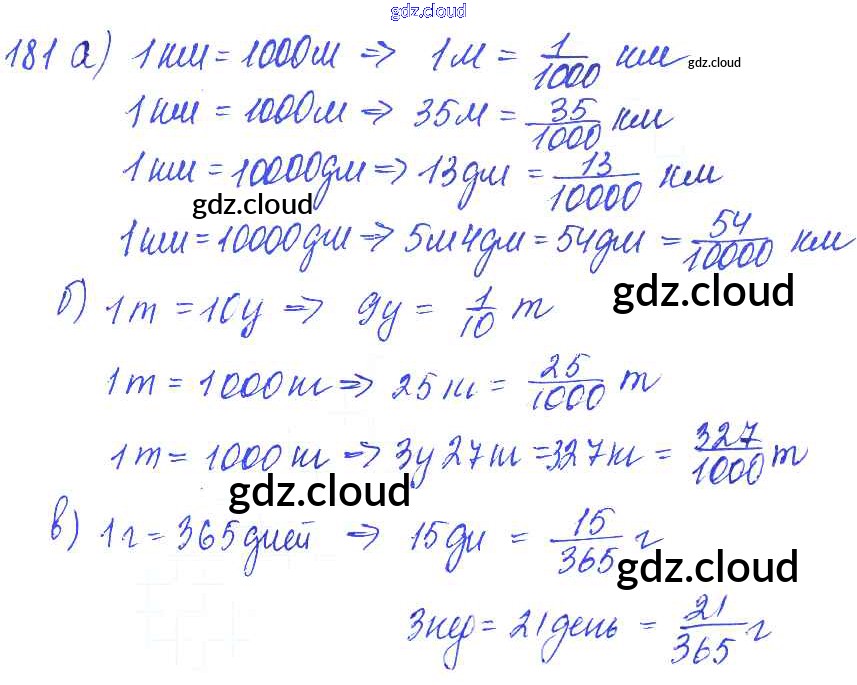 gdz.cloud
181 а) 1 км = 1000 м => 1 м = 1/1000 км gdz.cloud
1 км = 1000 м => 35 м = 35/1000 км
1 км = 10000 дм => 13 дм = 13/10000 км
gdz.cloud
1 км = 10000 дм => 5 м 4 дм = 54 дм = 54/10000 км
gdz.cloud
б) 1 т = 10 ц => 9 ц = 1/10 т
1 т = 1000 кг => 25 кг = 25/1000 т
1 т = 1000 кг => 3 ц 27 кг = 327 кг = 327/1000 т
gdz.cloud
в) 1 г = 365 дней => 15 дн = 15/365 г
gdz.cloud
3 нед = 21 день = 21/365 г